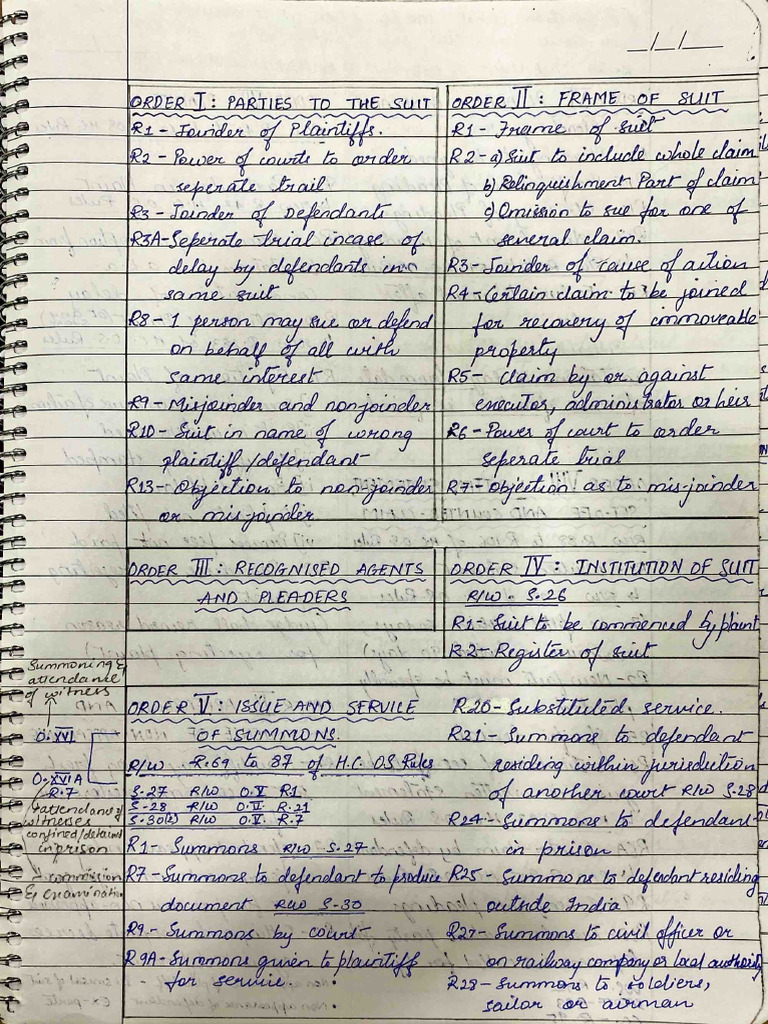 _/_/_
ORDER I : PARTIES TO THE SUIT
R1 - Joinder of Plaintiffs.
R2 - Power of courts to order
seperate trail
R3 - Joinder of Defendants
R3A - Seperate trial incase of
delay by defendants in
same suit
R8 - 1 person may sue or defend
on behalf of all with
same interest
R9 - Misjoinder and nonjoinder
R10 - Suit in name of wrong
plaintiff/defendant
R13 - Objection to non-joinder
or mis-joinder
ORDER II : FRAME OF SUIT
R1 - Frame of suit
R2 - a) Suit to include whole claim
b) Relinquishment Part of claim
c) Omission to sue for one of
several claim.
R3 - Joinder of cause of action
R4 - Certain claim to be joined
for recovery of immoveable
property
R5 - claim by or against
executor, administrator or heir
R6 - Power of court to order
seperate trial
R7 - Objection as to mis-joinder
ORDER III : RECOGNISED AGENTS
AND PLEADERS
ORDER IV : INSTITUTION OF SUIT
R/W - S.26
R1 - Suit to be commenced by plaint
R-2 - Register of suit
Summoning &
attendance
of witness
O.XVI
O.XVIA
R.7
attendance of
witnesses
confined/detained
in prison
commission
& examination
ORDER V : ISSUE AND SERVICE
OF SUMMONS.
R/W R.69 to 87 of H.C. OS Rules
S.27 R/W O.V R1
S.28 R/W O.V R.21
S.30(2) R/W O.V R.7
R1 - Summons R/W S.27
R7 - Summons to defendant to produce
document R/W S-30
R9 - Summons by court
R9A - Summons given to plaintiff
for service.
R20 - Substituted service.
R21 - Summons to defendant
residing within jurisdiction
of another court R/W S.28
R24 - Summons to defendant
in prison
R25 - Summons to defendant residing
outside India
R27 - Summons to civil officer or
on railway company or local authority
R28 - Summons to soldiers,
sailor or airman